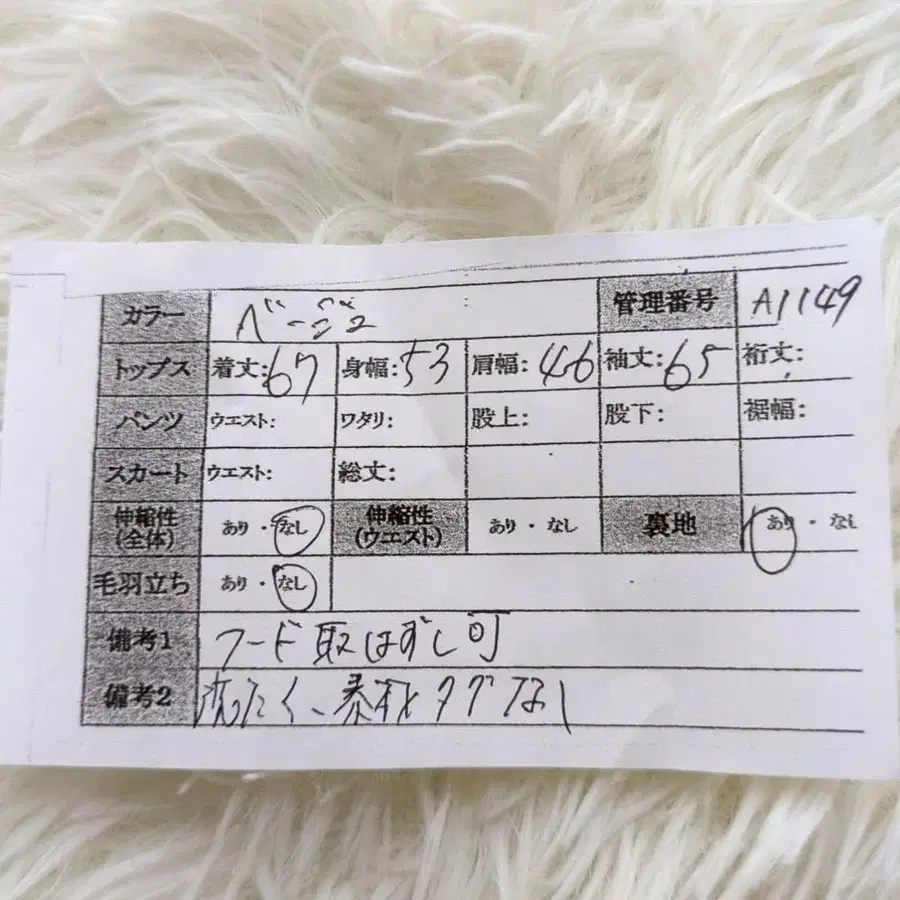 カラー ベージュ 管理番号 A1149
トップス 着丈:67 身幅:53 肩幅:46 袖丈:65 裄丈:
パンツ ウエスト: ワタリ: 股上: 股下: 裾幅:
スカート ウエスト: 総丈:
伸縮性(全体) あり・なし 伸縮性(ウエスト) あり・なし 裏地 あり・なし
毛羽立ち あり・なし
備考1 フード取はずし可
備考2 洗たく、素材タグなし